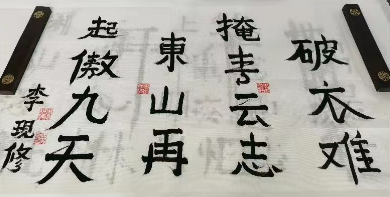 破衣难
掩青云志
東山再
起傲九天
李現修